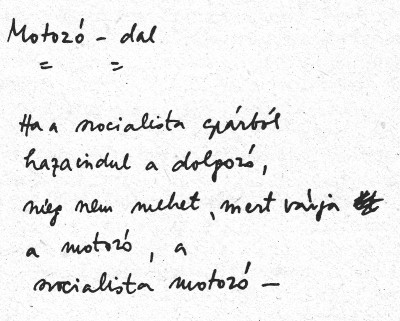 Motozó - dal
= =
Ha a szocialista gyárból
hazaindul a dolgozó,
még nem mehet, mert várja
a motozó, a
szocialista motozó -